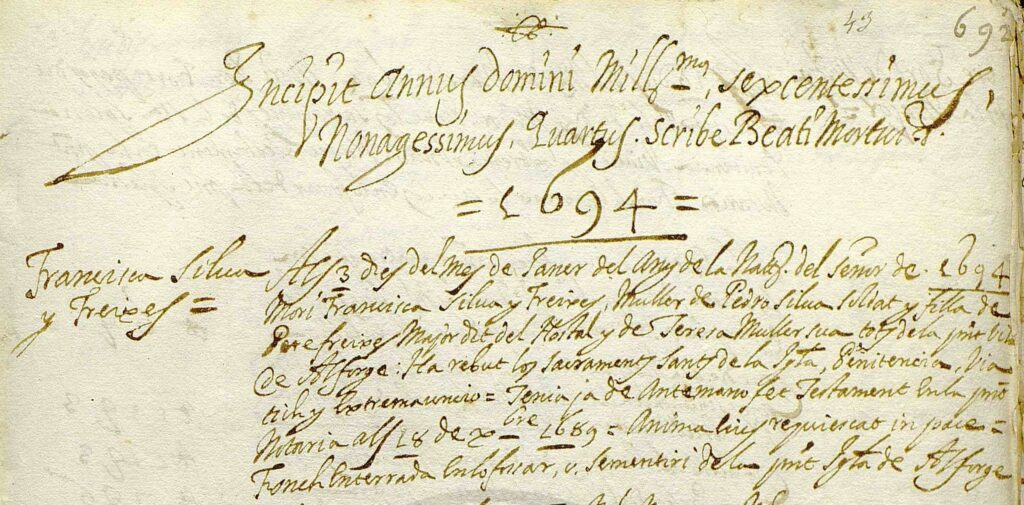 43 692
Incipit Annus domini Mill.mus, sexcentessimus,
Nonagessimus, Quartus. Scribe Beati Mortui &.
= 1694 =
Francisca Silva
y Freixes =
Als 3 dies del Mes de Janer del Any de la Natt. del señor de 1694
Morí Francisca Silva y Freixes, Muller de Pedro Silva soldat y filla de
Pere freixes Major dit del Hostal y de Teresa Muller sua tots de la pnt Vila
de Alforge: Ha rebut los Sacraments Sants de la Igla, Penitencia, Via
tich y Extremauncio = Tenia ja de Antemano fet Testament En la pnt
Notaria als 18 de xbre 1689 = Anima eius requiescat in pace =
Fonch Enterrada En lo fossar, o, Sementiri de la pnt Igla de Alforge